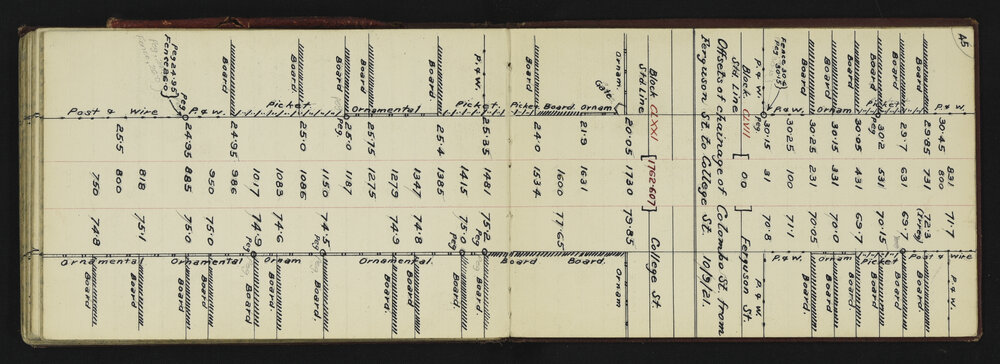 45
P. & W. Board Picket Board Ornam Board Board P. & W.
30.45 29.85 29.7 30.2 Peg 30.15 30.15 30.25 30.25 30.15 Peg
831 800 731 631 531 431 331 231 100 31 00
71.7 72.3 (Error) 69.7 70.15 69.7 70.0 70.05 71.1 70.8
Post & Wire
P. & W. Board Board Picket Board Ornam Board P. & W. P. & W.
Fence 30.4
Peg 30.15
Block CLVII
Std. Line
Ferguson St.
Offsets of chainage of Colombo St. from
Ferguson St. to College St. 10/3/21.
Block CLXXI [1762.607] College St.
Std Line
Ornam. Gate
20.05 1730 79.85
Ornam
Picket Board Ornam
Board Board
21.9 1631
1600 77.65
24.0 1534
Board Board.
P. & W. Picket
25.35 1481 75.2 Peg
1415 75.0 Peg
Board 25.4 1385
1347 74.8
Ornamental
1279 74.9
Board 25.75 1275
Board 25.0 Peg 1187
Picket
1150 74.5 Peg
Board 25.0 1086
1083 74.6
1017 74.9 Peg
Board 24.95 986
P. & W.
950 75.0
Peg 24.95 885 75.0
Peg 24.95
Fence 25.0
818 75.1
Post & Wire 25.5 800
750 74.8
Board. Board. Ornamental. Board. Board. Ornam Board. Board. Ornamental Board. Board. Ornamental